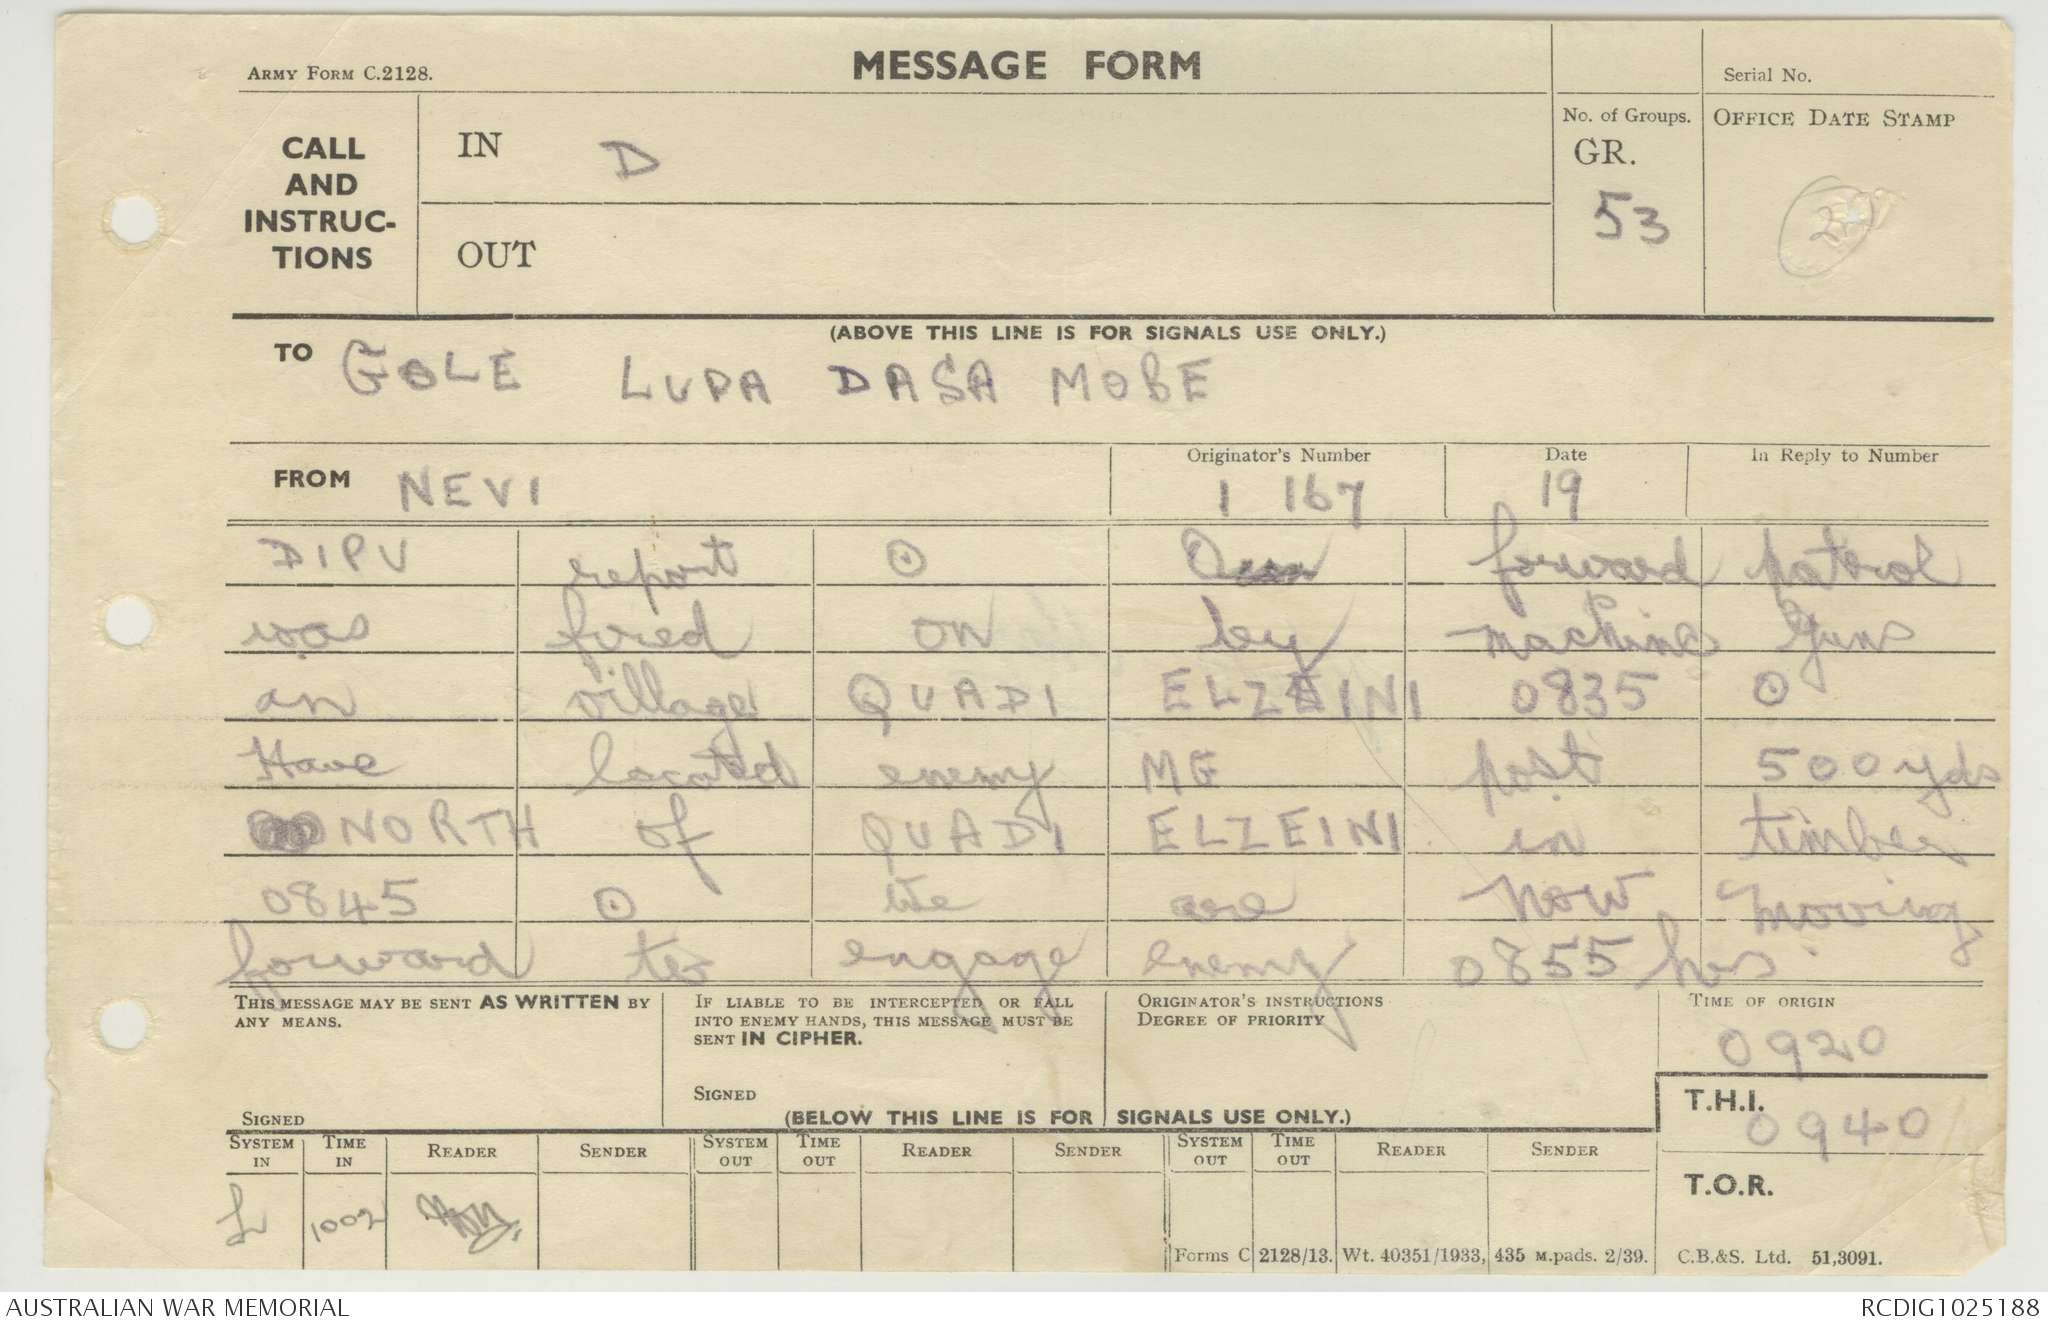 ARMY FORM C.2128.
MESSAGE FORM
Serial No.
CALL AND INSTRUC-TIONS
IN D
OUT
No. of Groups.
GR.
53
OFFICE DATE STAMP
(ABOVE THIS LINE IS FOR SIGNALS USE ONLY.)
TO GOLE LUPA DASA MOBE
FROM NEVI
Originator's Number
1 167
Date
19
In Reply to Number
DIPV report ⊙ Our forward patrol
was fired on by machine Guns
in village QUADI ELZEINI 0835 ⊙
Have located enemy MG post 500 yds
NORTH of QUADI ELZEINI in timber
0845 ⊙ We are now moving
forward to engage enemy 0855 hrs
THIS MESSAGE MAY BE SENT AS WRITTEN BY
ANY MEANS.
SIGNED
IF LIABLE TO BE INTERCEPTED OR FALL
INTO ENEMY HANDS, THIS MESSAGE MUST BE
SENT IN CIPHER.
SIGNED
ORIGINATOR'S INSTRUCTIONS
DEGREE OF PRIORITY
TIME OF ORIGIN
0920
T.H.I.
0940
T.O.R.
(BELOW THIS LINE IS FOR SIGNALS USE ONLY.)
SYSTEM IN TIME IN READER SENDER SYSTEM OUT TIME OUT READER SENDER SYSTEM OUT TIME OUT READER SENDER
L 1002
Forms C 2128/13. Wt. 40351/1933, 435 M.pads. 2/39. C.B.&S. Ltd. 51,3091.
AUSTRALIAN WAR MEMORIAL
RCDIG1025188